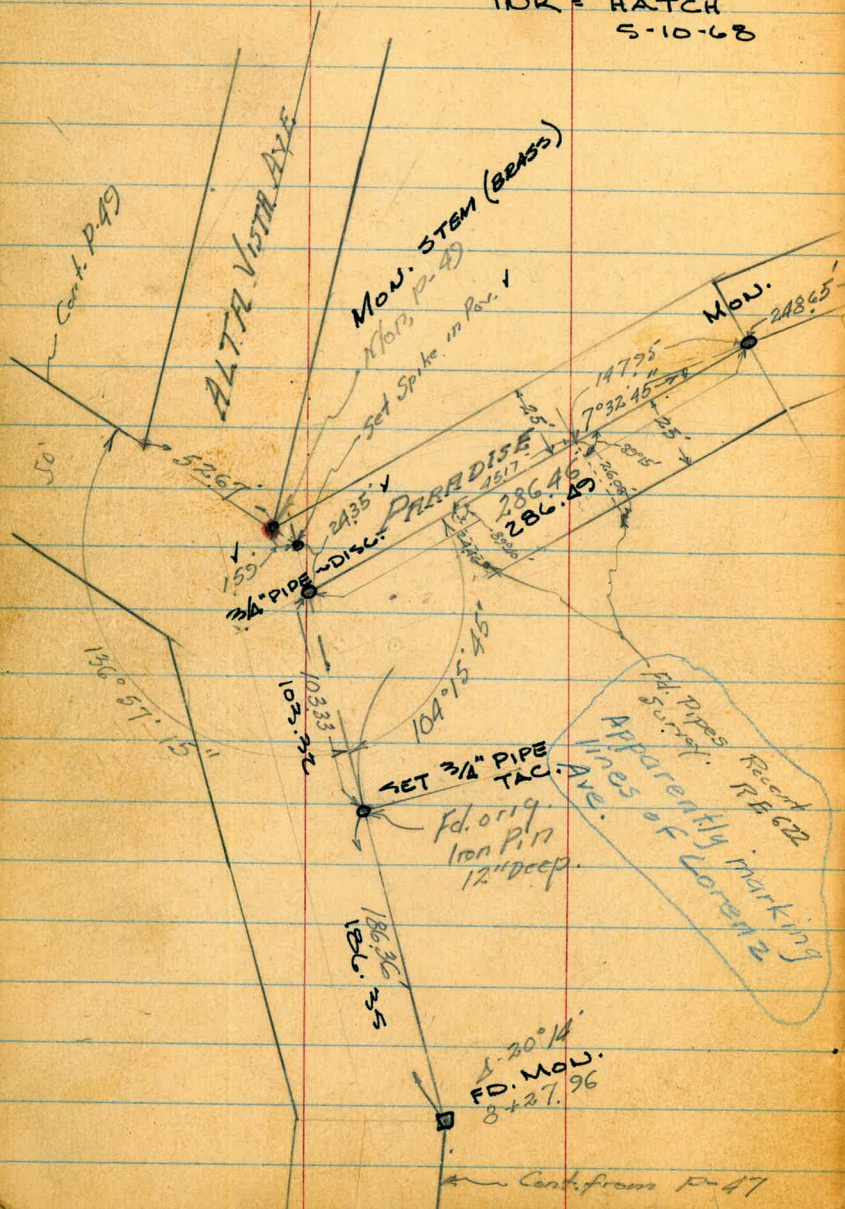 INK = HATCH
5-10-68
Cont. P-49
ALTA VISTA AVE
MON. STEM (BRASS)
Mon, p-49
Set Spike in Pav. ✓
MON.
248.65'
147.95
7°32'45"
25'
25'
50'
52.67'
24.35' ✓
PARADISE
45.17
286.46
286.49
89°15'
26.08'
✓
1.59'
3/4" PIPE ~ DISC.
136°57'-15"
103.33
103.32
104°15'45"
SET 3/4" PIPE
TAC.
Fd. orig.
Iron Pin
12" Deep.
Fd. Pipes Recent
Surrey. RE 622
Apparently marking
lines of Lorenz
Ave.
186.36'
186.35
Δ-20°14'
FD. MON.
8+27.96
Cont. from P-47